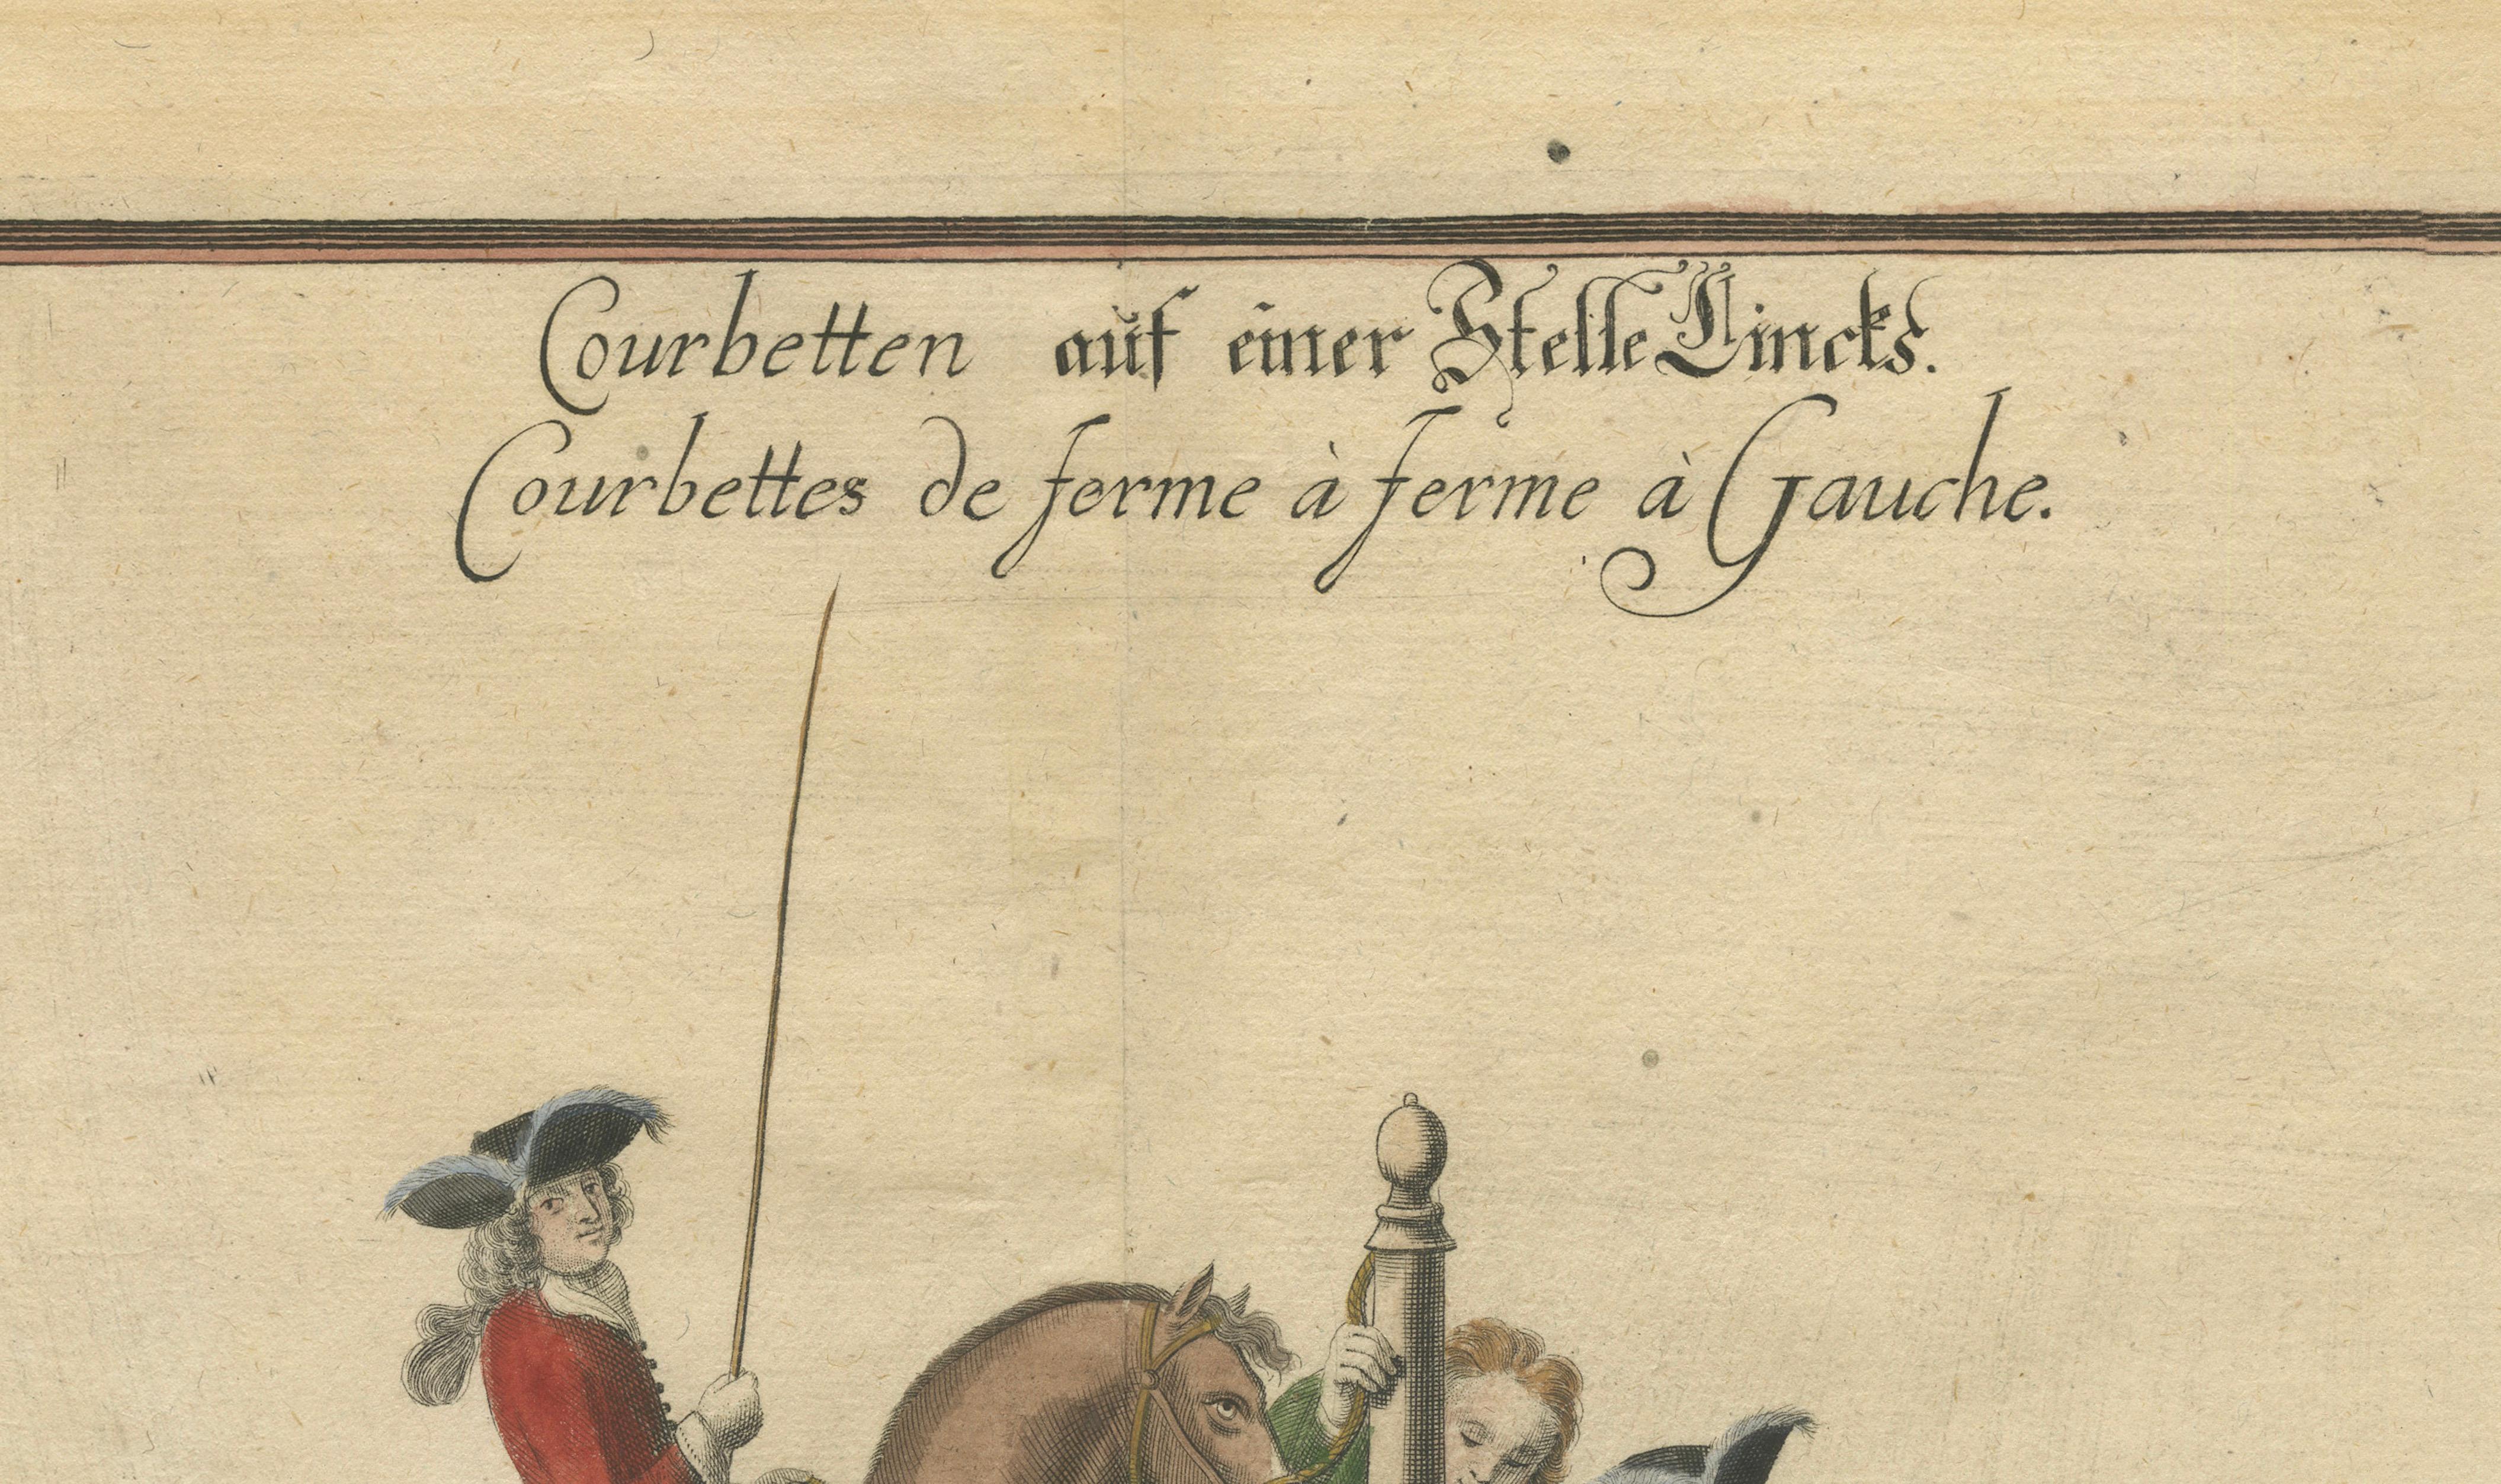 Courbetten auf einer Stelle Lincks.
Courbettes de ferme à ferme à Gauche.